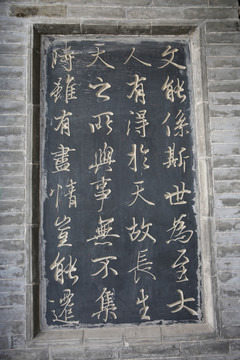 文能係斯世為至大
人有得於天故長生
大之所與事無不集
時雖有盡情豈能遷